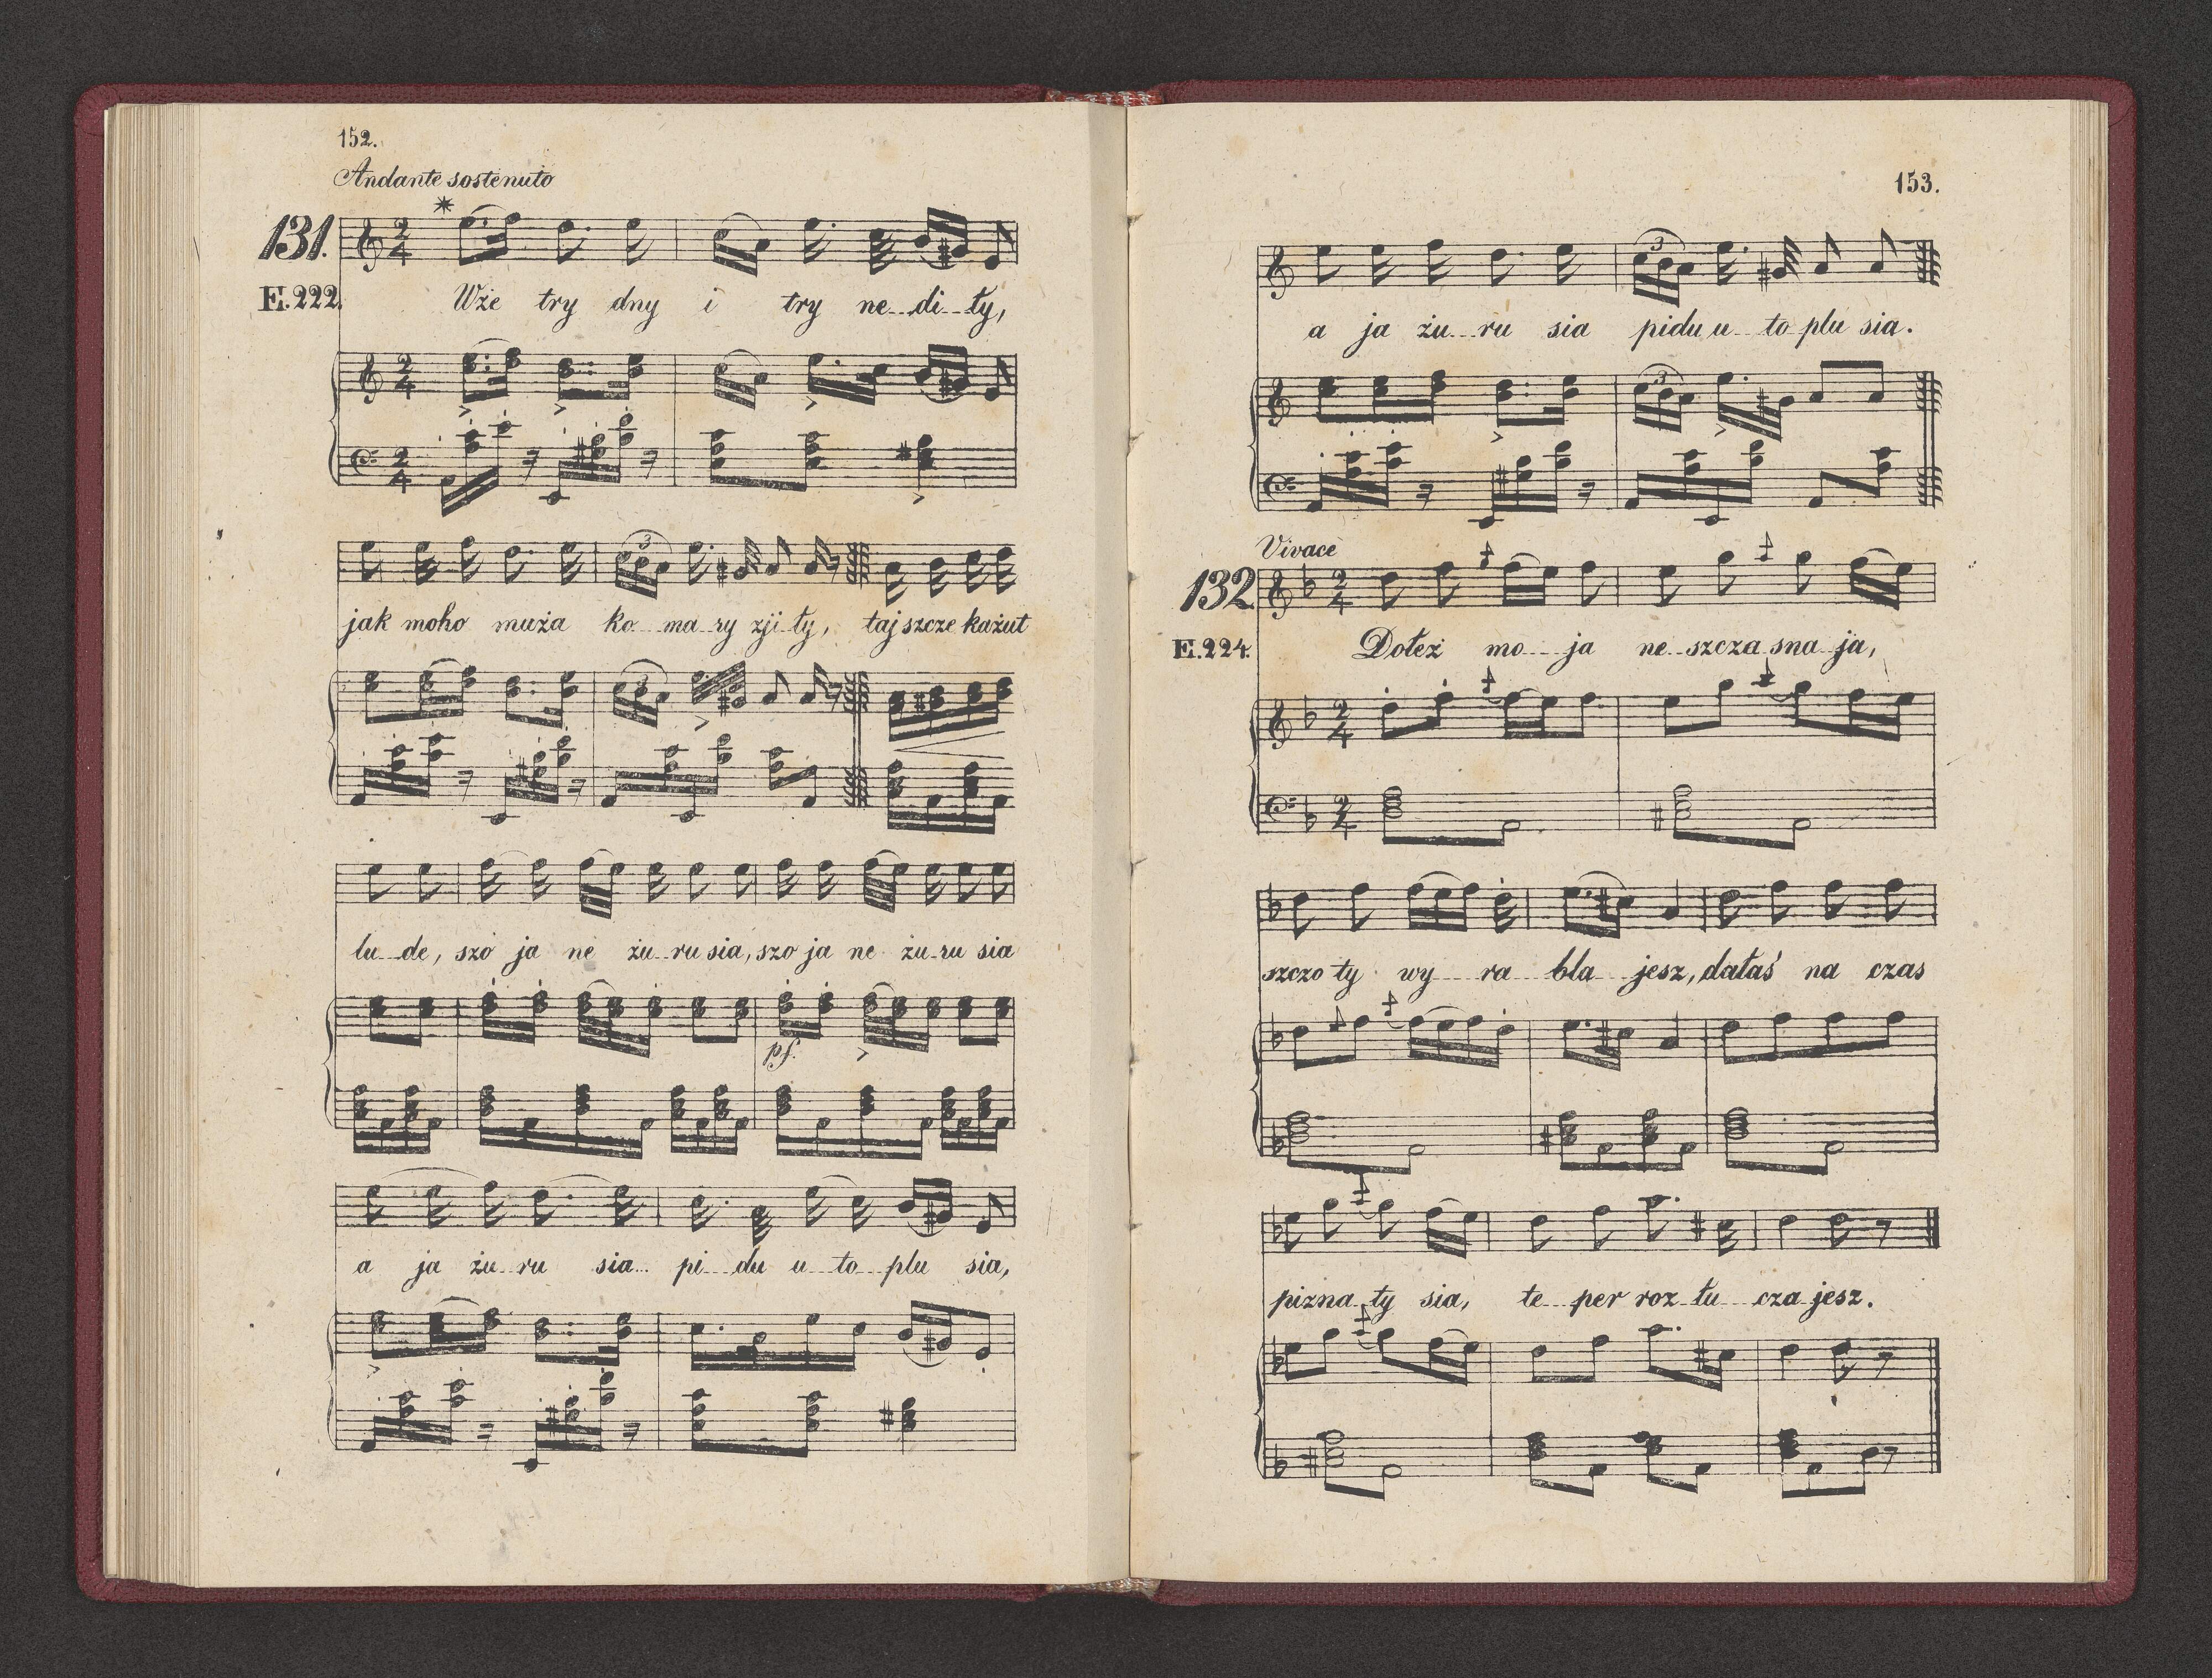 152.
Andante sostenuto
131.
E. 222.
Wże try dny i try ne di ły,
jak moho muża ko ma ry zji ły, taj szcze każut
lu de, szo ja ne żu ru sia, szo ja ne żu ru sia
pf.
a ja żu ru sia pi du u to plu sia,
153.
a ja żu ru sia pidu u to plu sia.
Vivace
132.
E. 224.
Dołeż mo ja ne szcza sna ja,
szczo ty wy ra bla jesz, dałaś na czas
pizna ty sia, te per roz łu cza jesz.